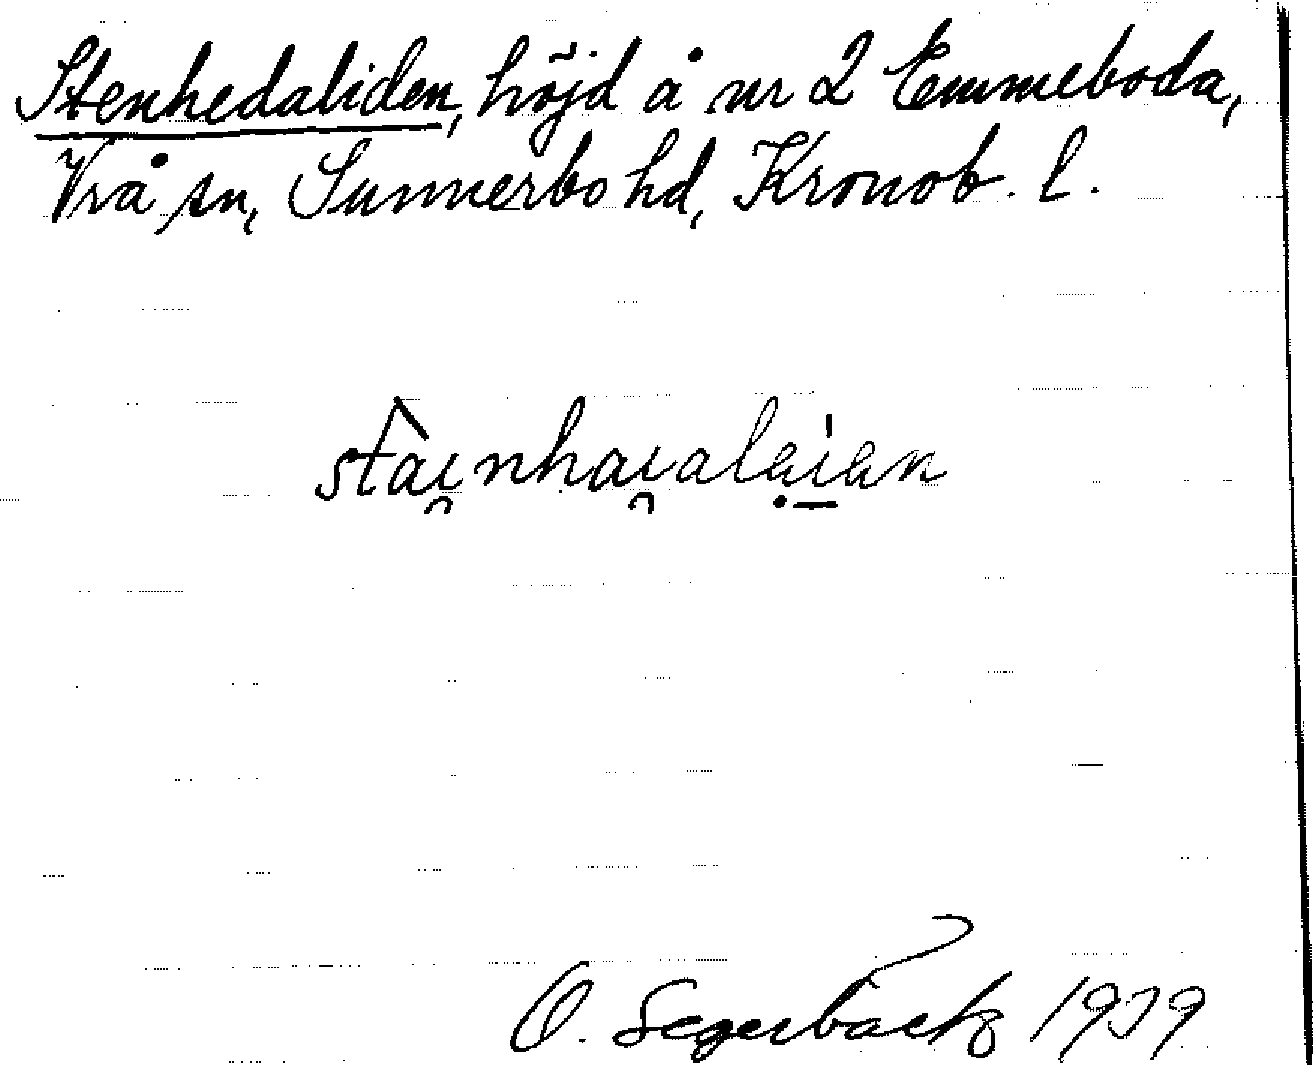 Stenhedaliden, höjd å nr 2 Emmeboda,
Vrå sn, Sunnerbo hd, Kronob. l.
stàı̯nhaı̯alạı̱ən
O. Segerbäck 1939